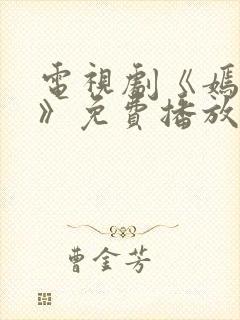 電視劇《媽
》免費播放
曹金芳